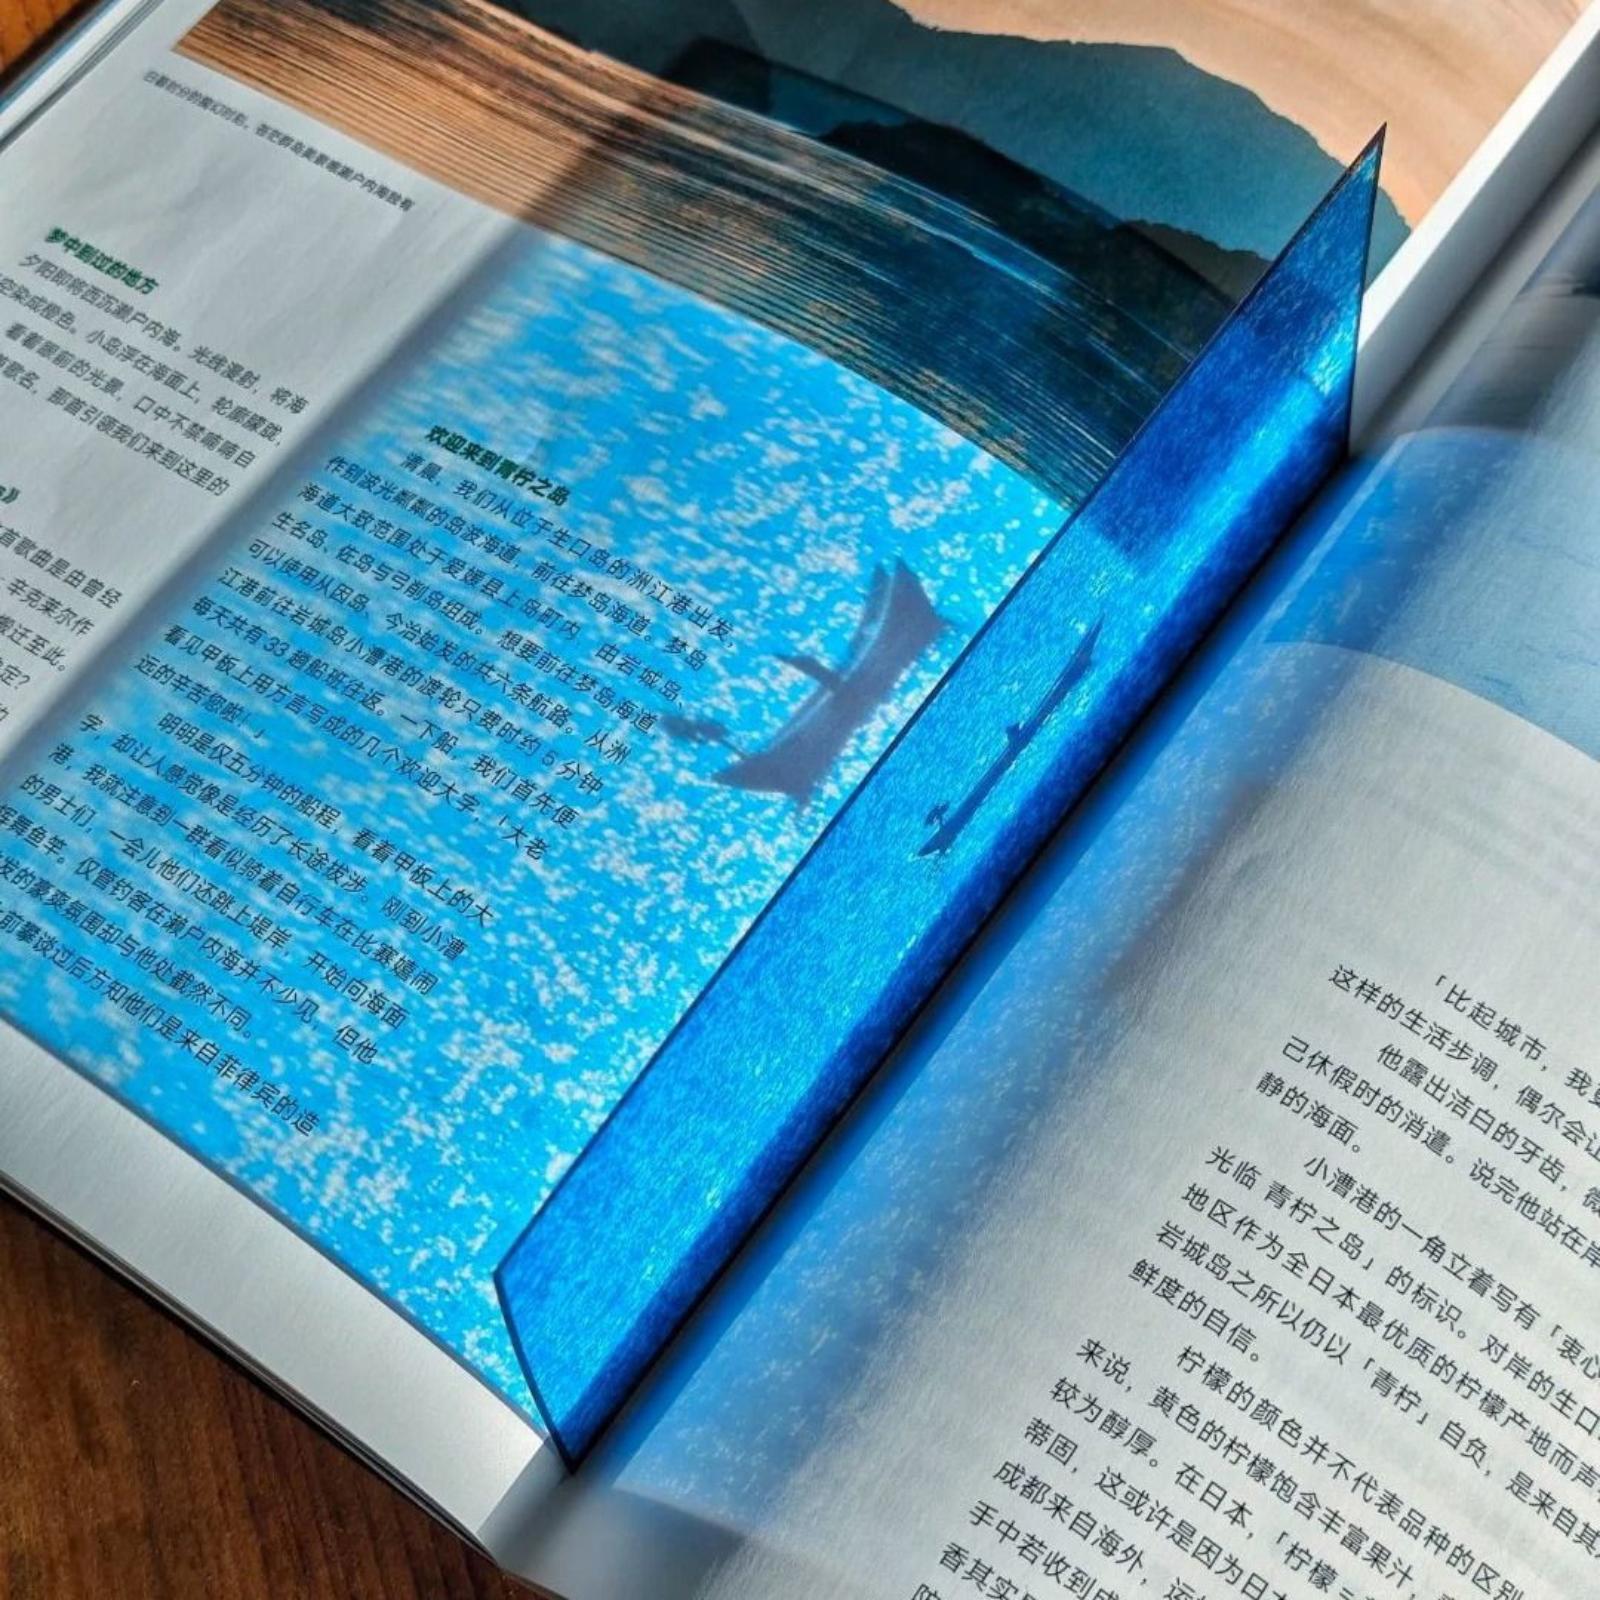 日暮时分的魔幻时刻，各芒群岛美景唯濑户内海独有
梦中到过的地方
夕阳即将西沉濑户内海。光线漫射，将海
空染成橙色。小岛浮在海面上，轮廓朦胧，
看着眼前的光景，口中不禁喃喃自
首歌名，那首引领我们来到这里的
首歌曲是由曾经
辛克莱尔作
搬迁至此。
定？
欢迎来到青柠之岛
清晨，我们从位于生口岛的洲江港出发，
作别波光粼粼的岛波海道，前往梦岛海道。梦岛
海道大致范围处于爱媛县上岛町内，由岩城岛、
生名岛、佐岛与弓削岛组成。想要前往梦岛海道
可以使用从因岛、今治始发的共六条航路。从洲
江港前往岩城岛小漕港的渡轮只费时约 5 分钟，
每天共有 33 趟船班往返。一下船，我们首先便
看见甲板上用方言写成的几个欢迎大字，「大老
远的辛苦您啦！」
明明是仅五分钟的船程，看着甲板上的大
字，却让人感觉像是经历了长途拔涉。刚到小漕
港，我就注意到一群看似骑着自行车在比赛嬉闹
的男士们，一会儿他们还跳上堤岸，开始向海面
挥舞鱼竿。仅管钓客在濑户内海并不少见，但他
发的豪爽氛围却与他处截然不同。
前攀谈过后方知他们是来自菲律宾的造
「比起城市，我更
这样的生活步调，偶尔会让
他露出洁白的牙齿，微
己休假时的消遣。说完他站在岸
静的海面。
小漕港的一角立着写有「衷心
光临 青柠之岛」的标识。对岸的生口
地区作为全日本最优质的柠檬产地而声
岩城岛之所以仍以「青柠」自负，是来自其
鲜度的自信。
柠檬的颜色并不代表品种的区别
来说，黄色的柠檬饱含丰富果汁，
较为醇厚。在日本，「柠檬＝
蒂固，这或许是因为日本
成都来自海外，运
手中若收到成
香其实